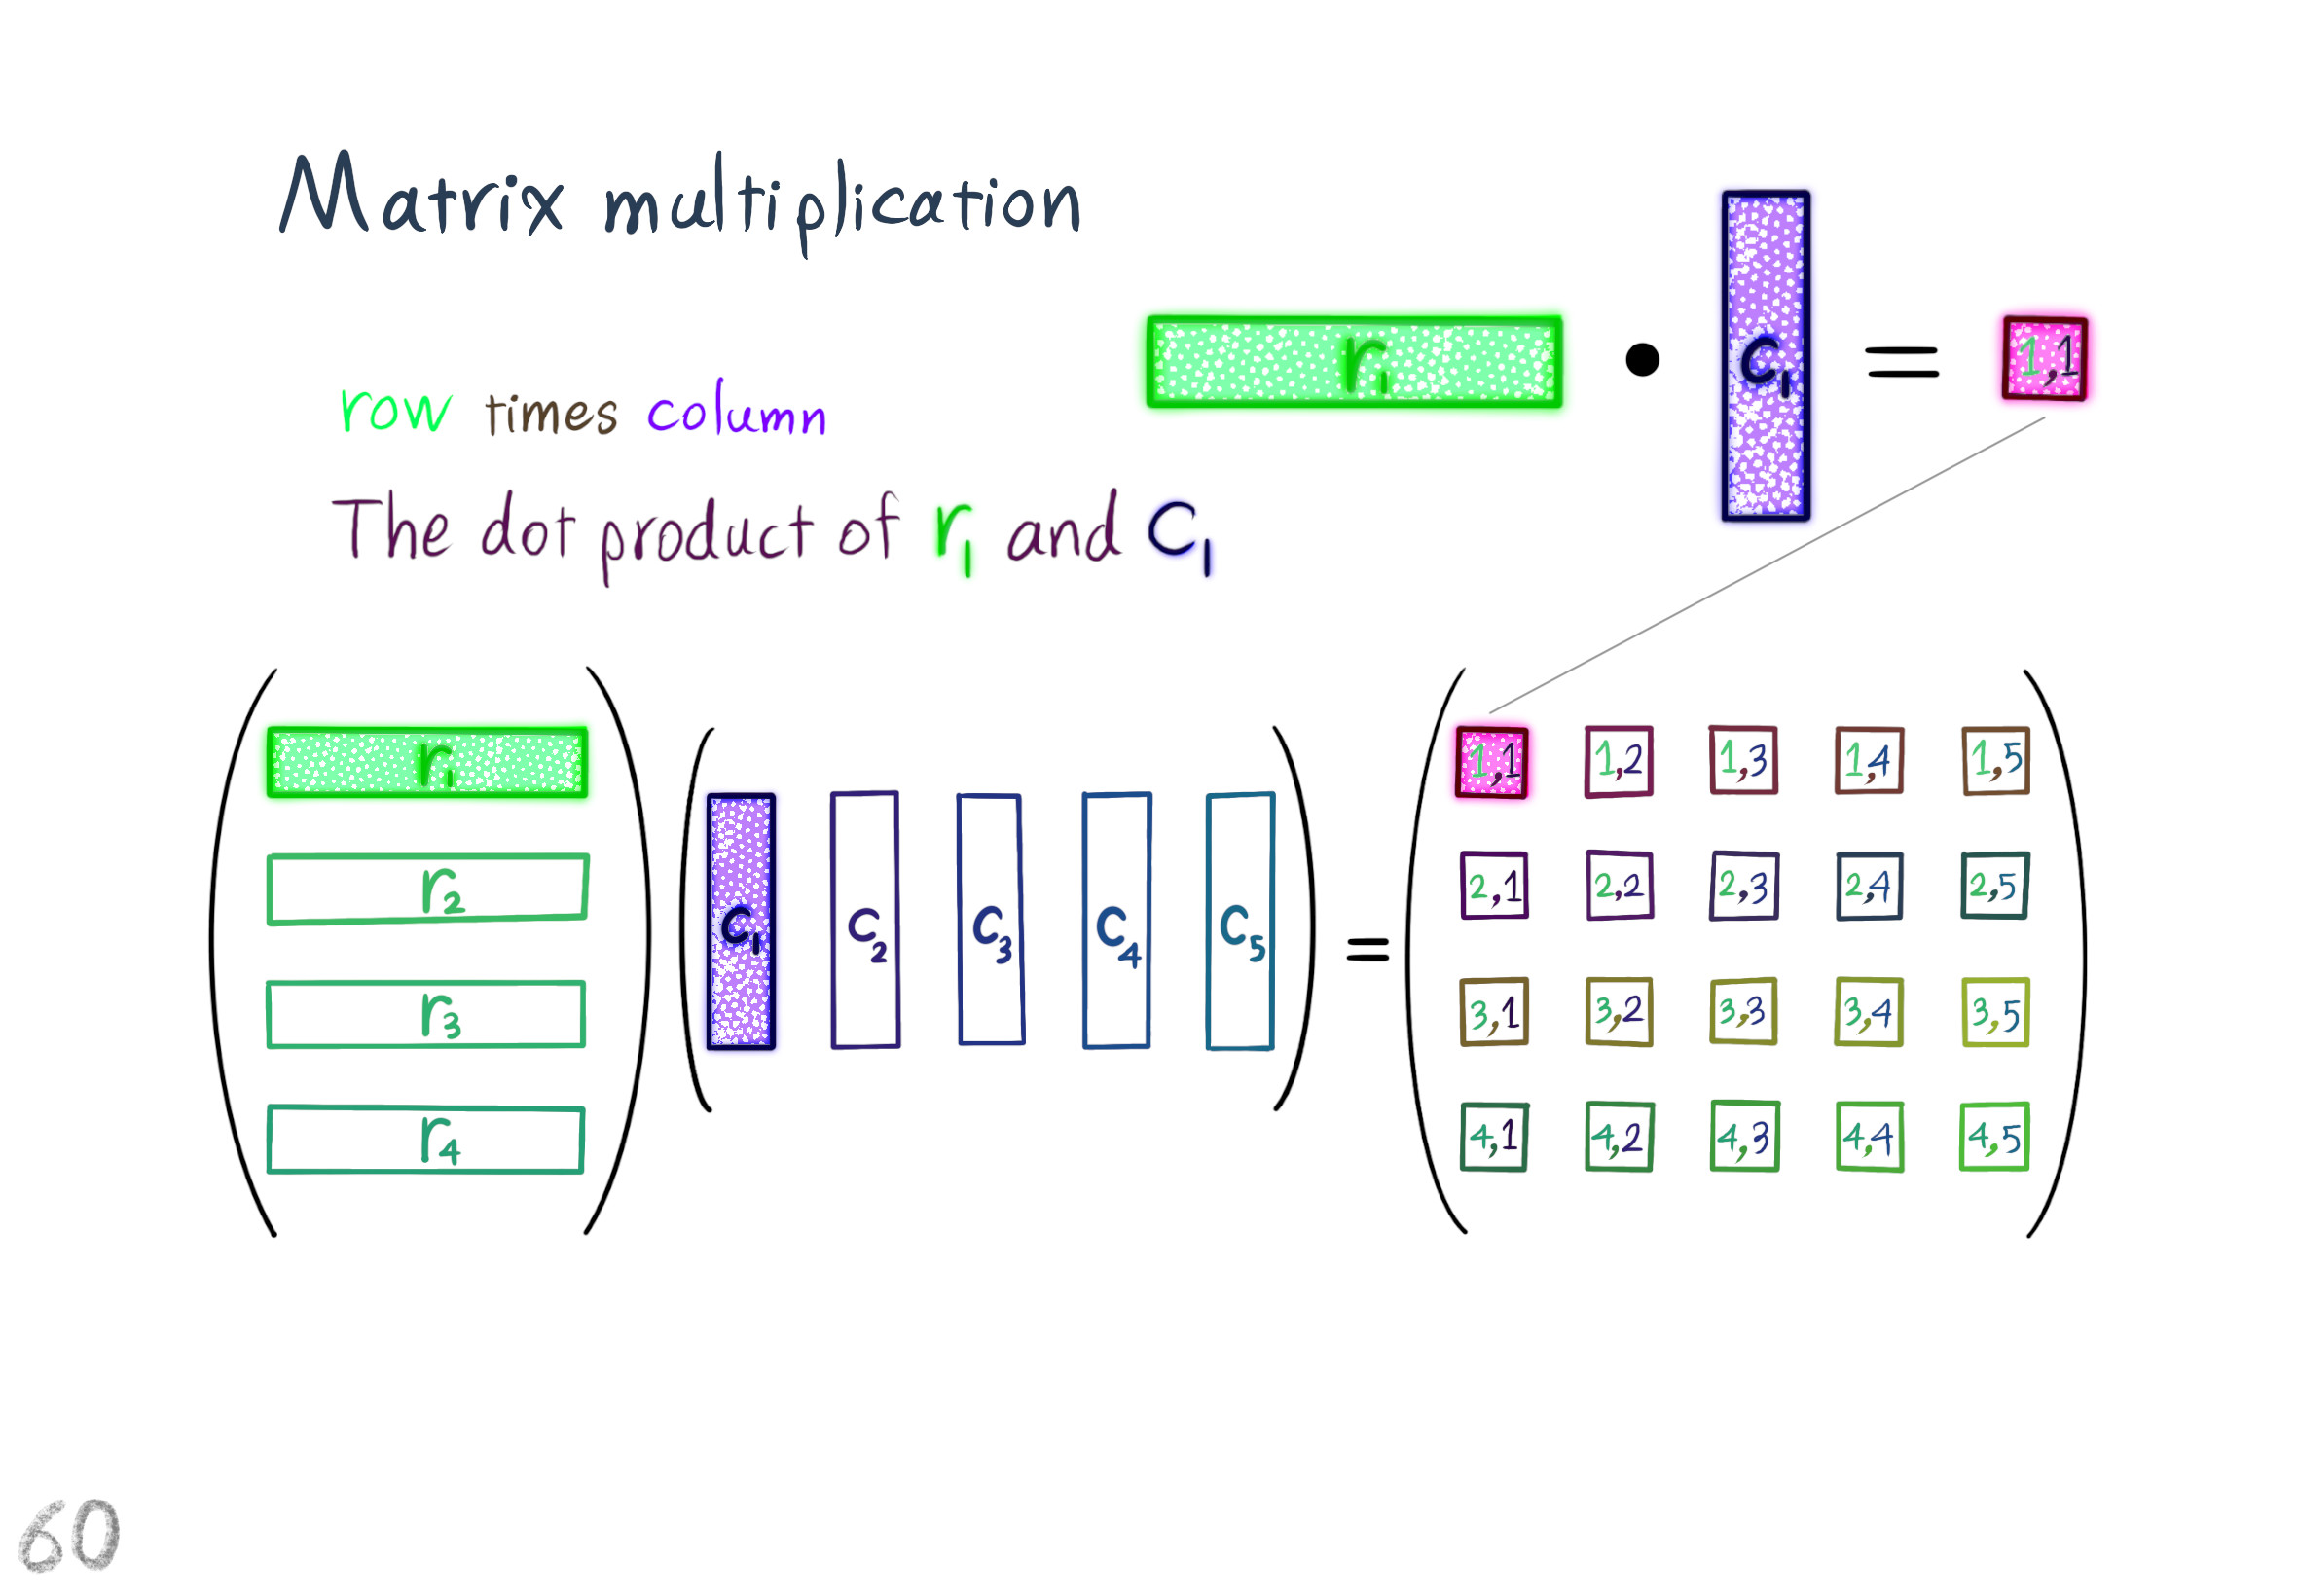 Matrix multiplication
r₁ • c₁ = 1,1
row times column
The dot product of r₁ and c₁
r₁
r₂
r₃
r₄
c₁ c₂ c₃ c₄ c₅
=
1,1 1,2 1,3 1,4 1,5
2,1 2,2 2,3 2,4 2,5
3,1 3,2 3,3 3,4 3,5
4,1 4,2 4,3 4,4 4,5
60